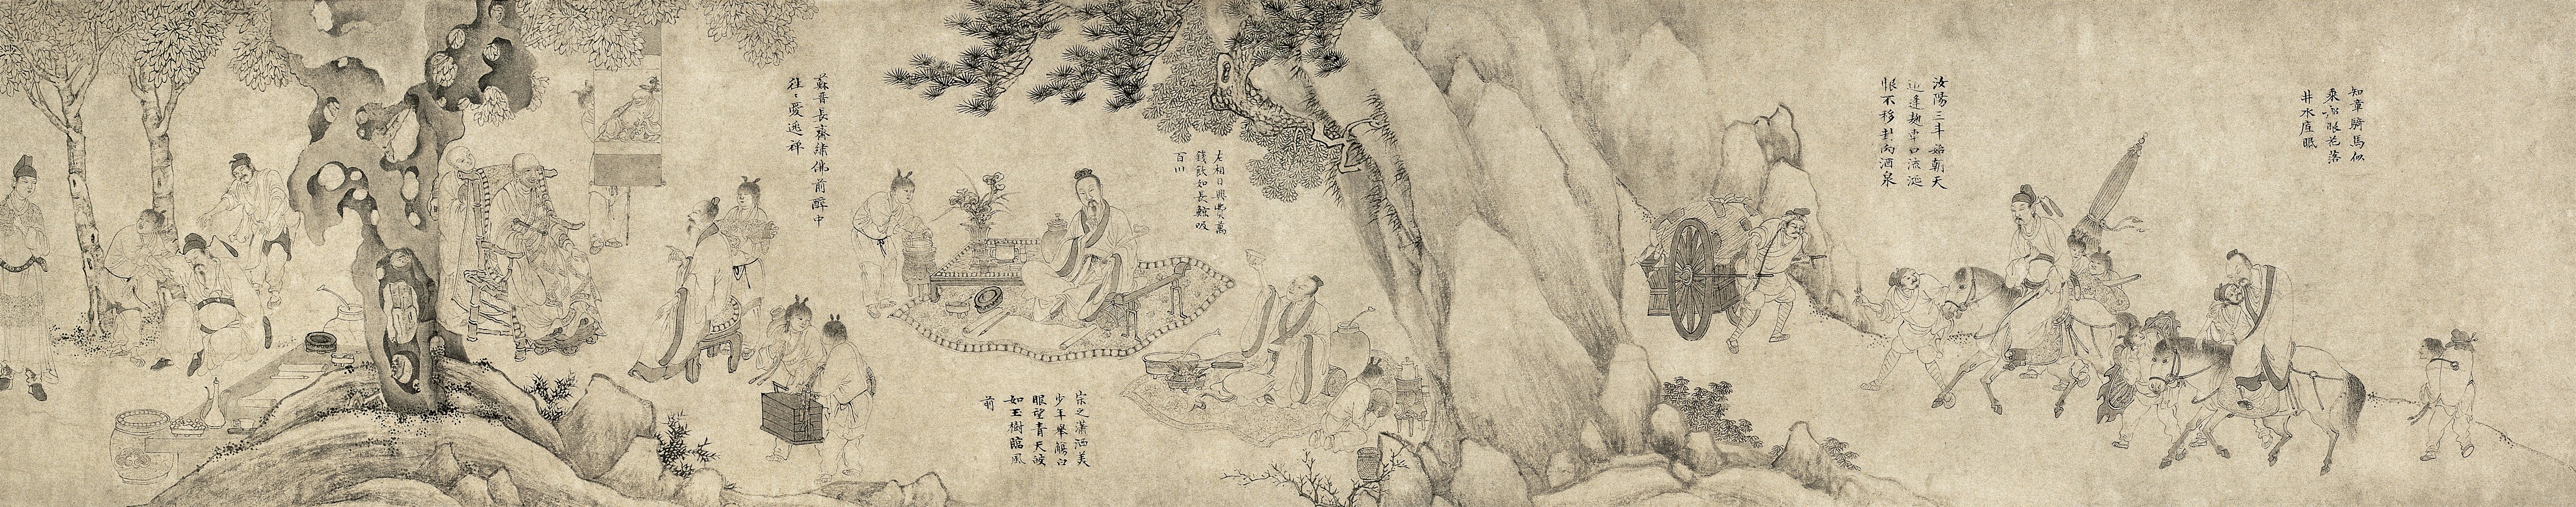 知章騎馬似
乘船眼花落
井水底眠
汝陽三斗始朝天
道逢麴車口流涎
恨不移封向酒泉
左相日興費萬
錢飲如長鯨吸
百川
宗之瀟洒美
少年舉觴白
眼望青天皎
如玉樹臨風
前
蘇晉長齋繡佛前醉中
往々愛逃禪